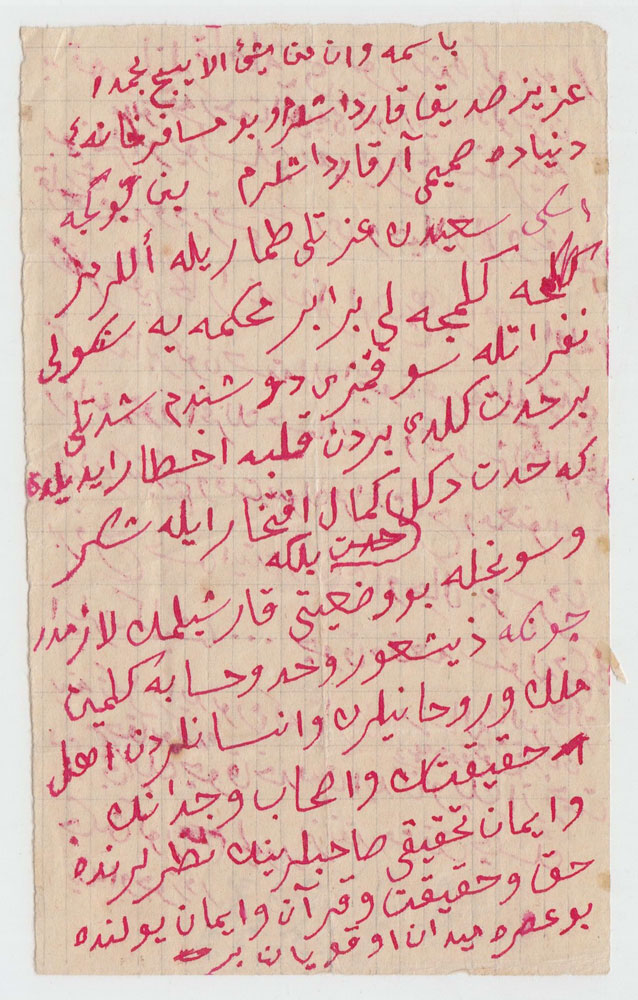 باسمه وان من شئ الا يسبح بحمده
عزيز صديق قارداشلرم و بو مسافرخانهٔ
دنياده صميمى آرقاداشلرم بن بوكيجه
اسكى سعيدك عزتلى طماريله أللرمز
كلمجه لى برابر محكمه يه سوقولى
نفراتله سوقمزى دوشندم شدتلى
بر حدت كلدى بردن قلبه اخطار ايديلدى
كه حدت دكل كمال افتخار ايله شكر
حدت بلكه
و سونجله بو وضعيتى قارشيلمك لازمدر
چونكه ذيشعور وحد و حسابه كلمين
ملك و روحانيلرك و انسانلردن اهل
حقيقتك و اصحاب وجدانك
و ايمان تحقيقى صاحبلرينك نظرلرنده
حق و حقيقت و قرآن و ايمان يولنده
بو عصره ميدان اوقويان بر